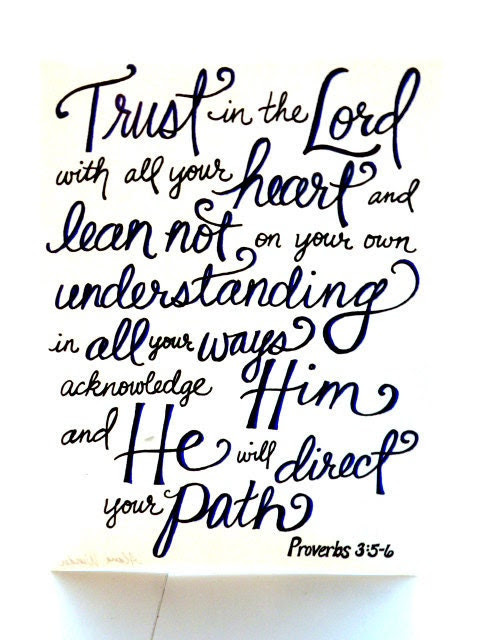 Trust in the Lord
with all your heart and
lean not on your own
understanding
in all your ways
acknowledge Him
and He will direct
your path
Proverbs 3:5-6